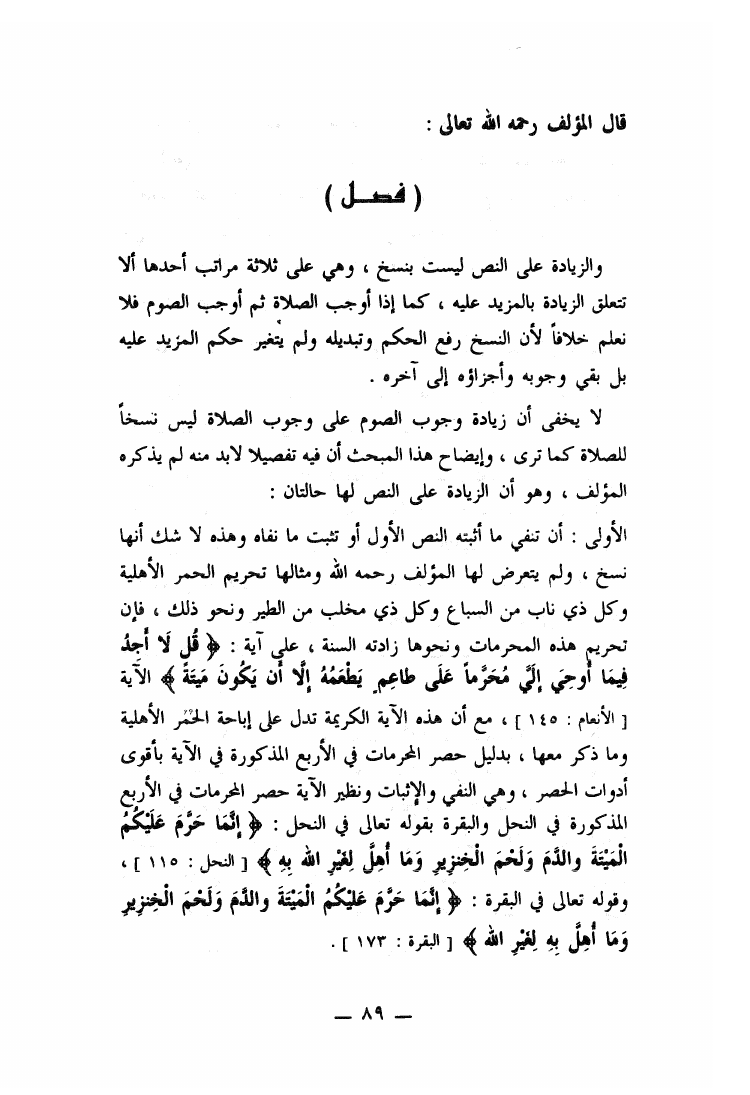 قال المؤلف رحمه الله تعالى :
( فصــل )
والزيادة على النص ليست بنسخ ، وهي على ثلاثة مراتب أحدها ألا
تتعلق الزيادة بالمزيد عليه ، كما إذا أوجب الصلاة ثم أوجب الصوم فلا
نعلم خلافاً لأن النسخ رفع الحكم وتبديله ولم يتغير حكم المزيد عليه
بل بقي وجوبه وأجزاؤه إلى آخره .
لا يخفى أن زيادة وجوب الصوم على وجوب الصلاة ليس نسخاً
للصلاة كما ترى ، وإيضاح هذا المبحث أن فيه تفصيلا لابد منه لم يذكره
المؤلف ، وهو أن الزيادة على النص لها حالتان :
الأولى : أن تنفي ما أثبته النص الأول أو تثبت ما نفاه وهذه لا شك أنها
نسخ ، ولم يتعرض لها المؤلف رحمه الله ومثالها تحريم الحمر الأهلية
وكل ذي ناب من السباع وكل ذي مخلب من الطير ونحو ذلك ، فإن
تحريم هذه المحرمات ونحوها زادته السنة ، على آية : ﴿ قُل لَا أَجِدُ
فِيمَا أُوحِيَ إِلَيَّ مُحَرَّماً عَلَى طاعِمٍ يَطْعَمُهُ إِلَّا أَن يَكُونَ مَيتَةً ﴾ الآية
[ الأنعام : ١٤٥ ] ، مع أن هذه الآية الكريمة تدل على إباحة الحُمُر الأهلية
وما ذكر معها ، بدليل حصر المحرمات في الأربع المذكورة في الآية بأقوى
أدوات الحصر ، وهي النفي والإثبات ونظير الآية حصر المحرمات في الأربع
المذكورة في النحل والبقرة بقوله تعالى في النحل : ﴿ إِنَّمَا حَرَّمَ عَلَيْكُمُ
الْمَيْتَةَ والدَّمَ وَلَحْمَ الْخِنزِيرِ وَمَا أُهِلَّ لِغَيْرِ الله بِهِ ﴾ [ النحل : ١١٥ ] ،
وقوله تعالى في البقرة : ﴿ إِنَّمَا حَرَّمَ عَلَيْكُمُ الْمَيْتَةَ والدَّمَ وَلَحْمَ الْخِنزِيرِ
وَمَا أُهِلَّ بِهِ لِغَيْرِ الله ﴾ [ البقرة : ١٧٣ ] .
— ٨٩ —